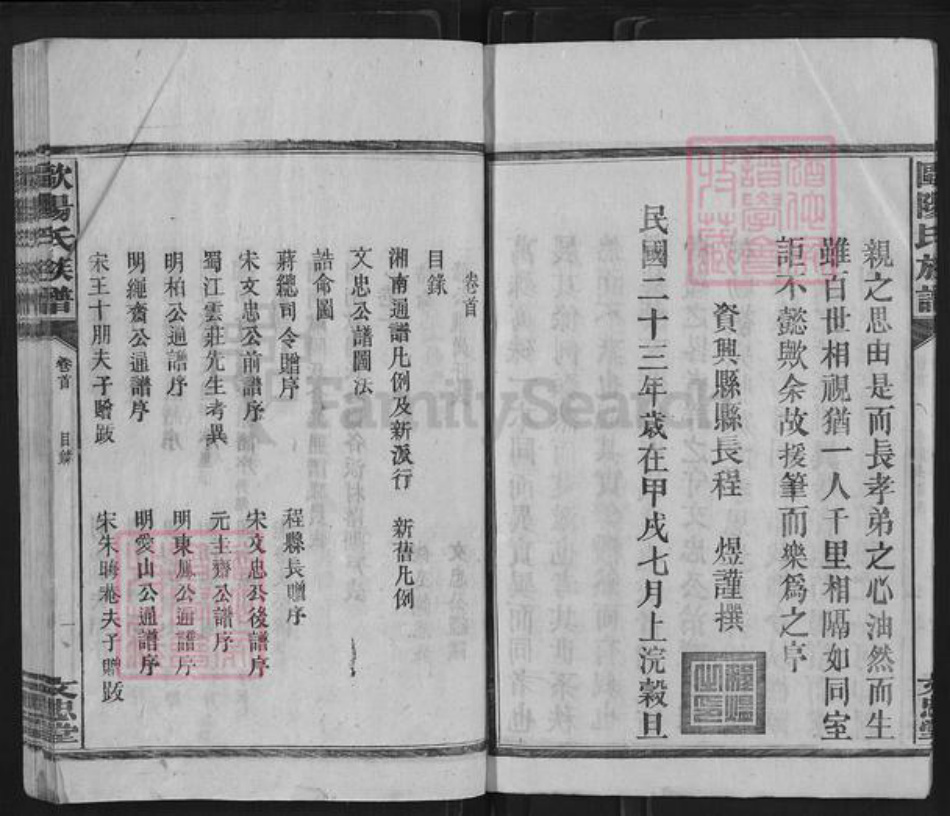 親之思由是而長孝弟之心油然而生
雖百世相視猶一人千里相隔如同室
詎不懿歟余故援筆而樂爲之序
資興縣縣長程　煜謹撰
民國二十三年歲在甲戌七月上浣穀旦
卷首
目錄
湘南通譜凡例及新派行　新舊凡例
文忠公譜圖法
誥命圖
蔣總司令贈序　程縣長贈序
宋文忠公前譜序　宋文忠公後譜序
蜀江雲莊先生考異　元圭齋公譜序
明柏公通譜序　明東鳳公通譜序
明繩齋公通譜序　明愛山公通譜序
宋王十朋夫子贈跋　宋朱晦菴夫子贈跋
歐陽氏族譜　卷首　目錄　一　文忠堂
歐陽氏族譜　文忠堂
FamilySearch